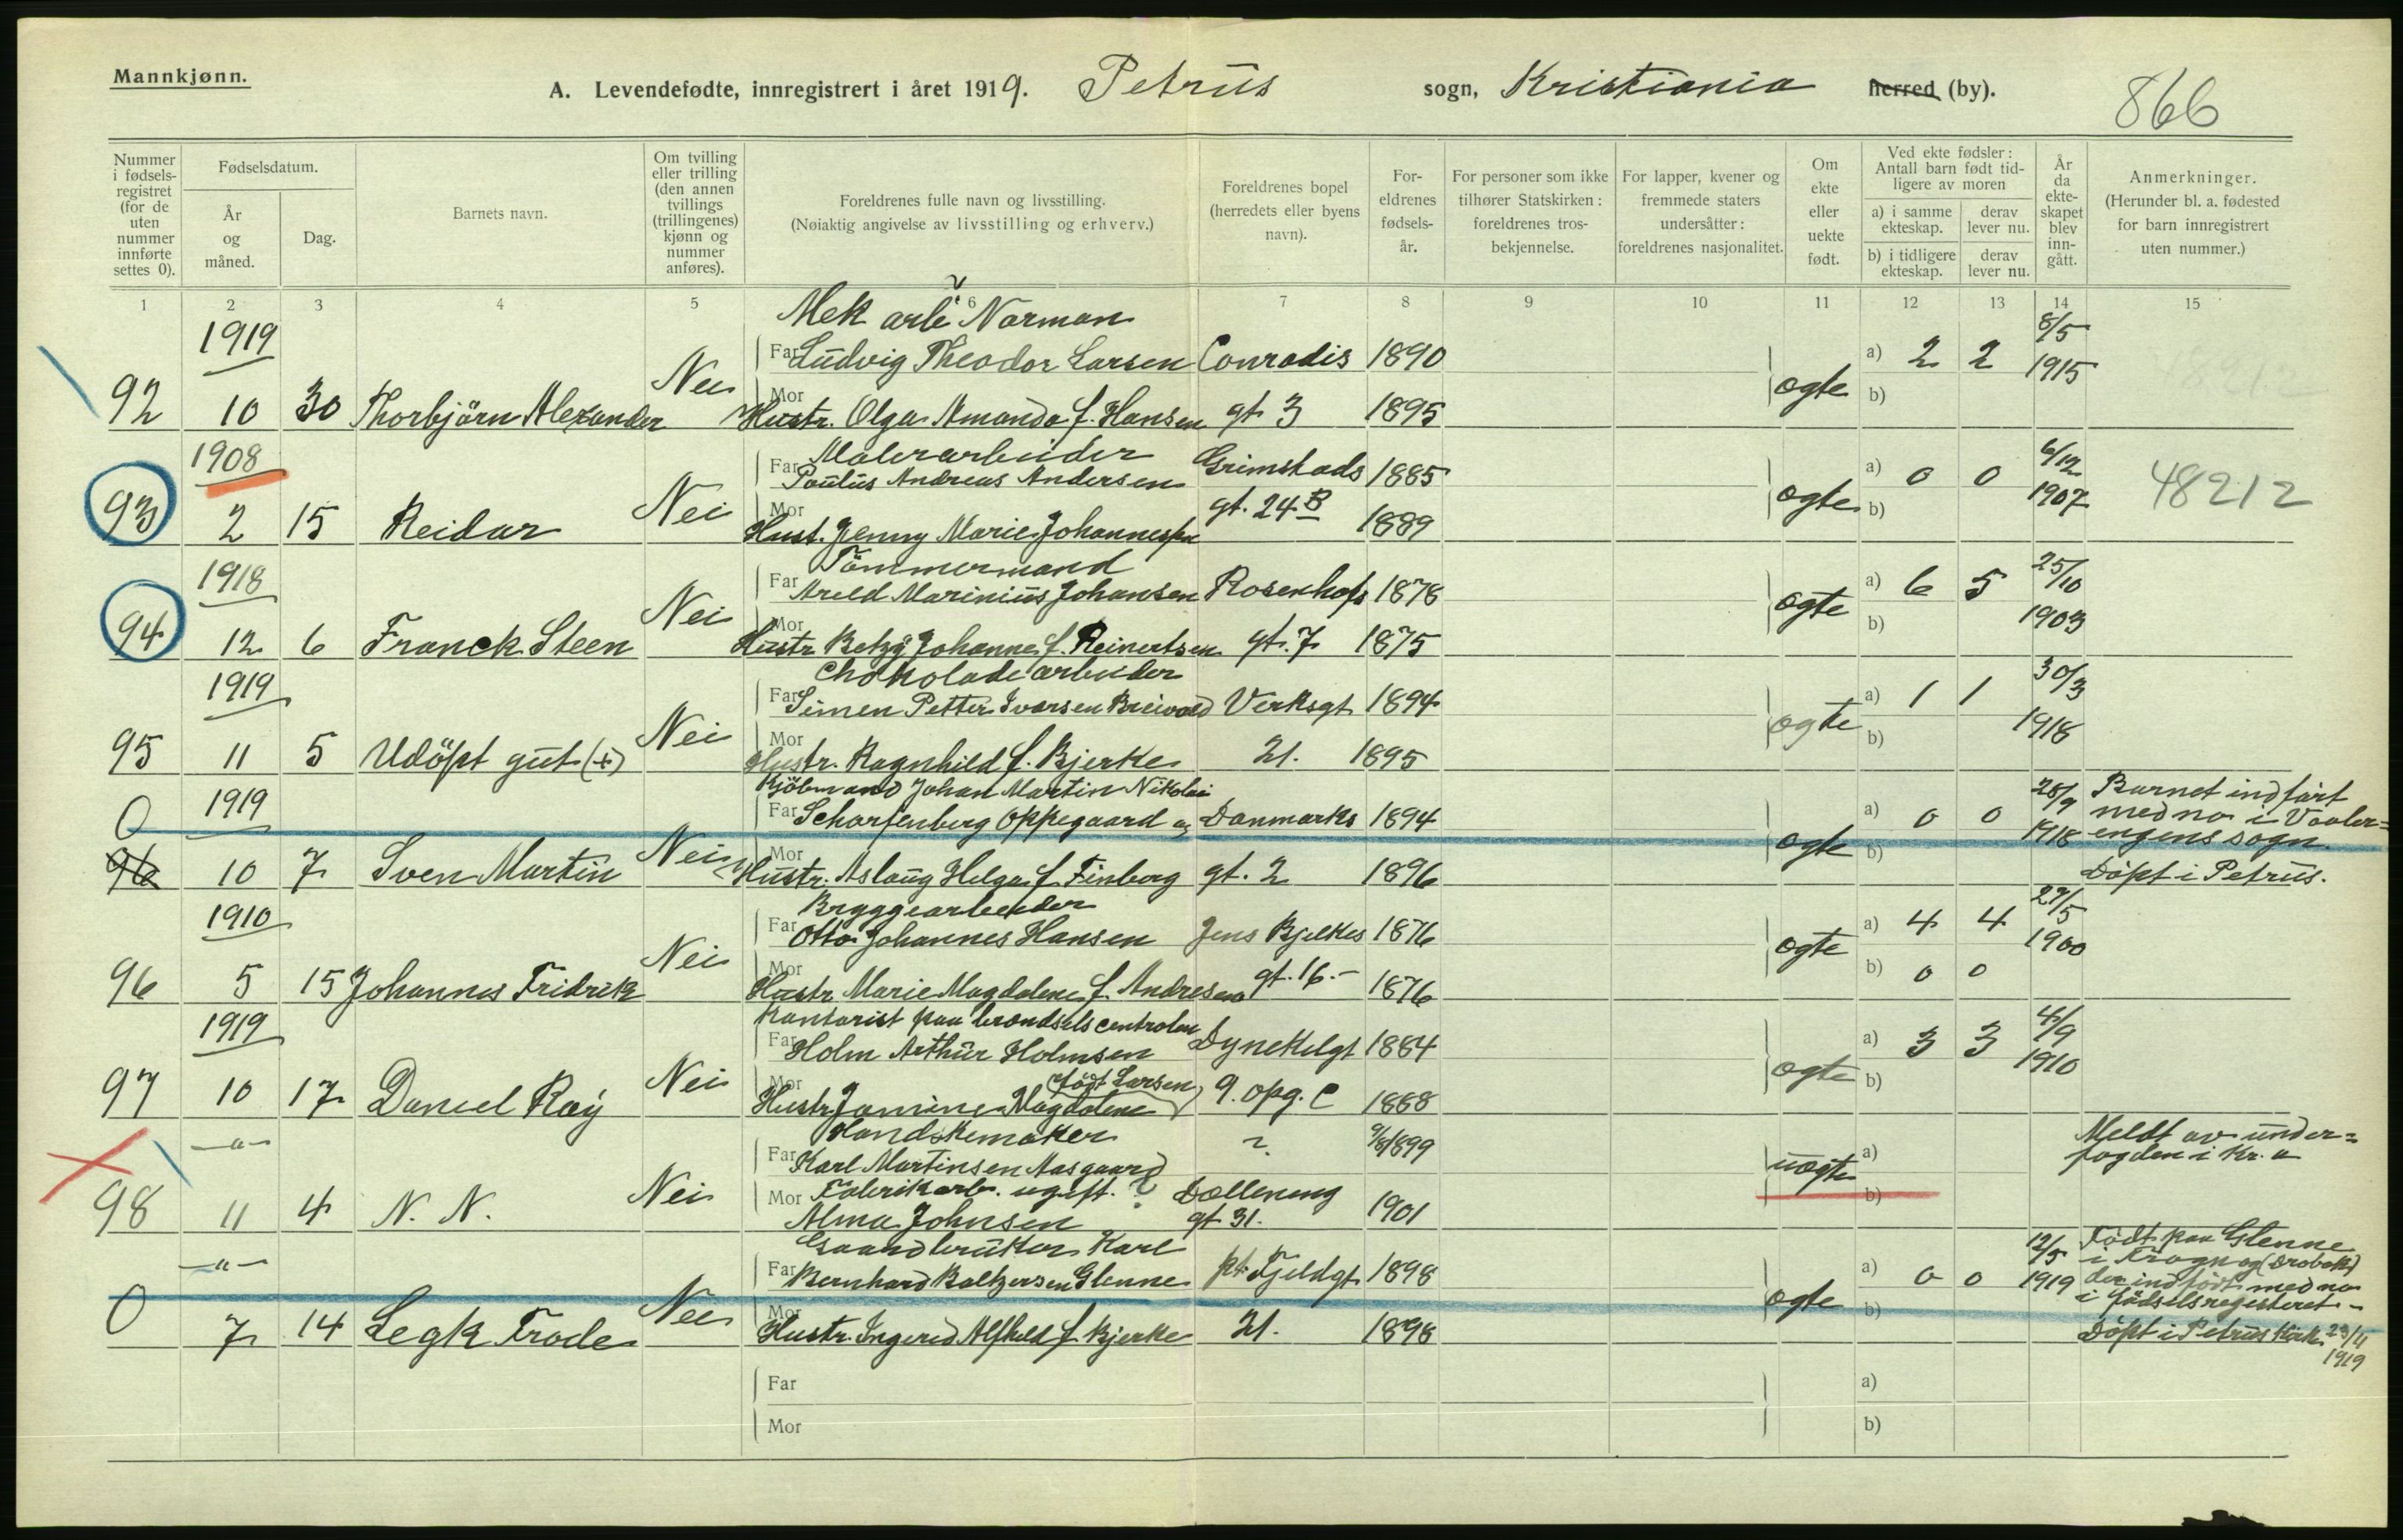 Mannkjønn.
A. Levendefødte, innregistrert i året 1919. Petrus sogn, Kristiania herred (by).
866
Nummer i fødselsregistret (for de uten nummer innførte settes 0).
Fødselsdatum.
År og måned.
Dag.
Barnets navn.
Om tvilling eller trilling (den annen tvillings (trillingenes) kjønn og nummer anføres).
Foreldrenes fulle navn og livsstilling.
(Nøiaktig angivelse av livsstilling og erhverv.)
Foreldrenes bopel (herredets eller byens navn).
Foreldrenes fødselsår.
For personer som ikke tilhører Statskirken: foreldrenes trosbekjennelse.
For lapper, kvener og fremmede staters undersåtter: foreldrenes nasjonalitet.
Om ekte eller uekte født.
Ved ekte fødsler: Antall barn født tidligere av moren
a) i samme ekteskap. derav lever nu.
b) i tidligere ekteskap. derav lever nu.
År da ekteskapet blev inngått.
Anmerkninger.
(Herunder bl. a. fødested for barn innregistrert uten nummer.)
1 2 3 4 5 6 7 8 9 10 11 12 13 14 15
1919 Mek arb. Norman 8/5
Far Ludvig Theodor Larsen Conradis 1890 a) 2 2 1915
92 10 30 Thorbjörn Alexander Nei Mor Hustr. Olga Amanda f. Hansen gt 3 1895 ogte b)
1908 Malerarbeider 6/12
Far Paulus Andreas Andersen Grimstads 1885 a) 0 0 1907 48212
93 2 15 Reidar Nei Mor Hust. Jenny Marie Johannessen gt. 24 B 1889 ogte b)
1918 Tömmermand 25/10
Far Arild Marinius Johansen Rosenhofs 1878 a) 6 5 1903
94 12 6 Franck Steen Nei Mor Hustr Betzy Johanne f. Reinertsen gt. 7 1875 ogte b)
1919 Chokoladearbeider 30/3
Far Simen Petter Ivarsen Breivold Verksgt 1894 a) 1 1 1918
95 11 5 Udöpt gut (+) Nei Mor Hustr. Ragnhild f. Bjerke 21. 1895 ogte b)
0 1919 Kjöbmand Johan Martin Nikolai 28/9 Barnet indfört
Far Scharfenberg Oppegaard og Danmarks 1894 a) 0 0 1918 med no i Vaaler=
engens sogn.
96 10 7 Sven Martin Nei Mor Hustr. Aslaug Helga f. Finborg gt. 2 1896 ogte b) Döpt i Petrus.
1910 Bryggearbeider 27/5
Far Otto Johannes Hansen Jens Bjelkes 1876 a) 4 4 1900
96 5 15 Johannes Fridrik Nei Mor Hustr Marie Magdalene f. Andresen gt. 16.- 1876 ogte b) 0 0
1919 Kontorist paa brændselscentralen 4/9
Far Holm Arthur Holmsen Dynekilgt 1884 a) 3 3 1910
97 10 17 Daniel Ray Nei Mor Hustr Magdalene född Larsen 9. opg. C 1888 ogte b)
—"— Handskemaker ? 9/8 1899 Meldt av under=
Far Karl Martinsen Aasgaard a) fogden i Kr.a
98 11 4 N. N. Nei Mor Fabrikarb. ugift. Dælleneng 1901 uogte b)
Alma Johnsen gt 31.
—"— Gaardbruker Karl 12/5 Födt paa Glenne
Far Bernhard Baltzersen Glenne pt. Fjeldgt 1898 a) 0 0 1919 i Frogn og (Drobak)
der indfört med no
i födselsregisteret -
0 7 14 Legk Frode Nei Mor Hustr. Ingerid Alfhild f. Bjerke 21. 1898 ogte b) Döpt i Petrus Kirke 23/11
1919
Far a)
Mor b)